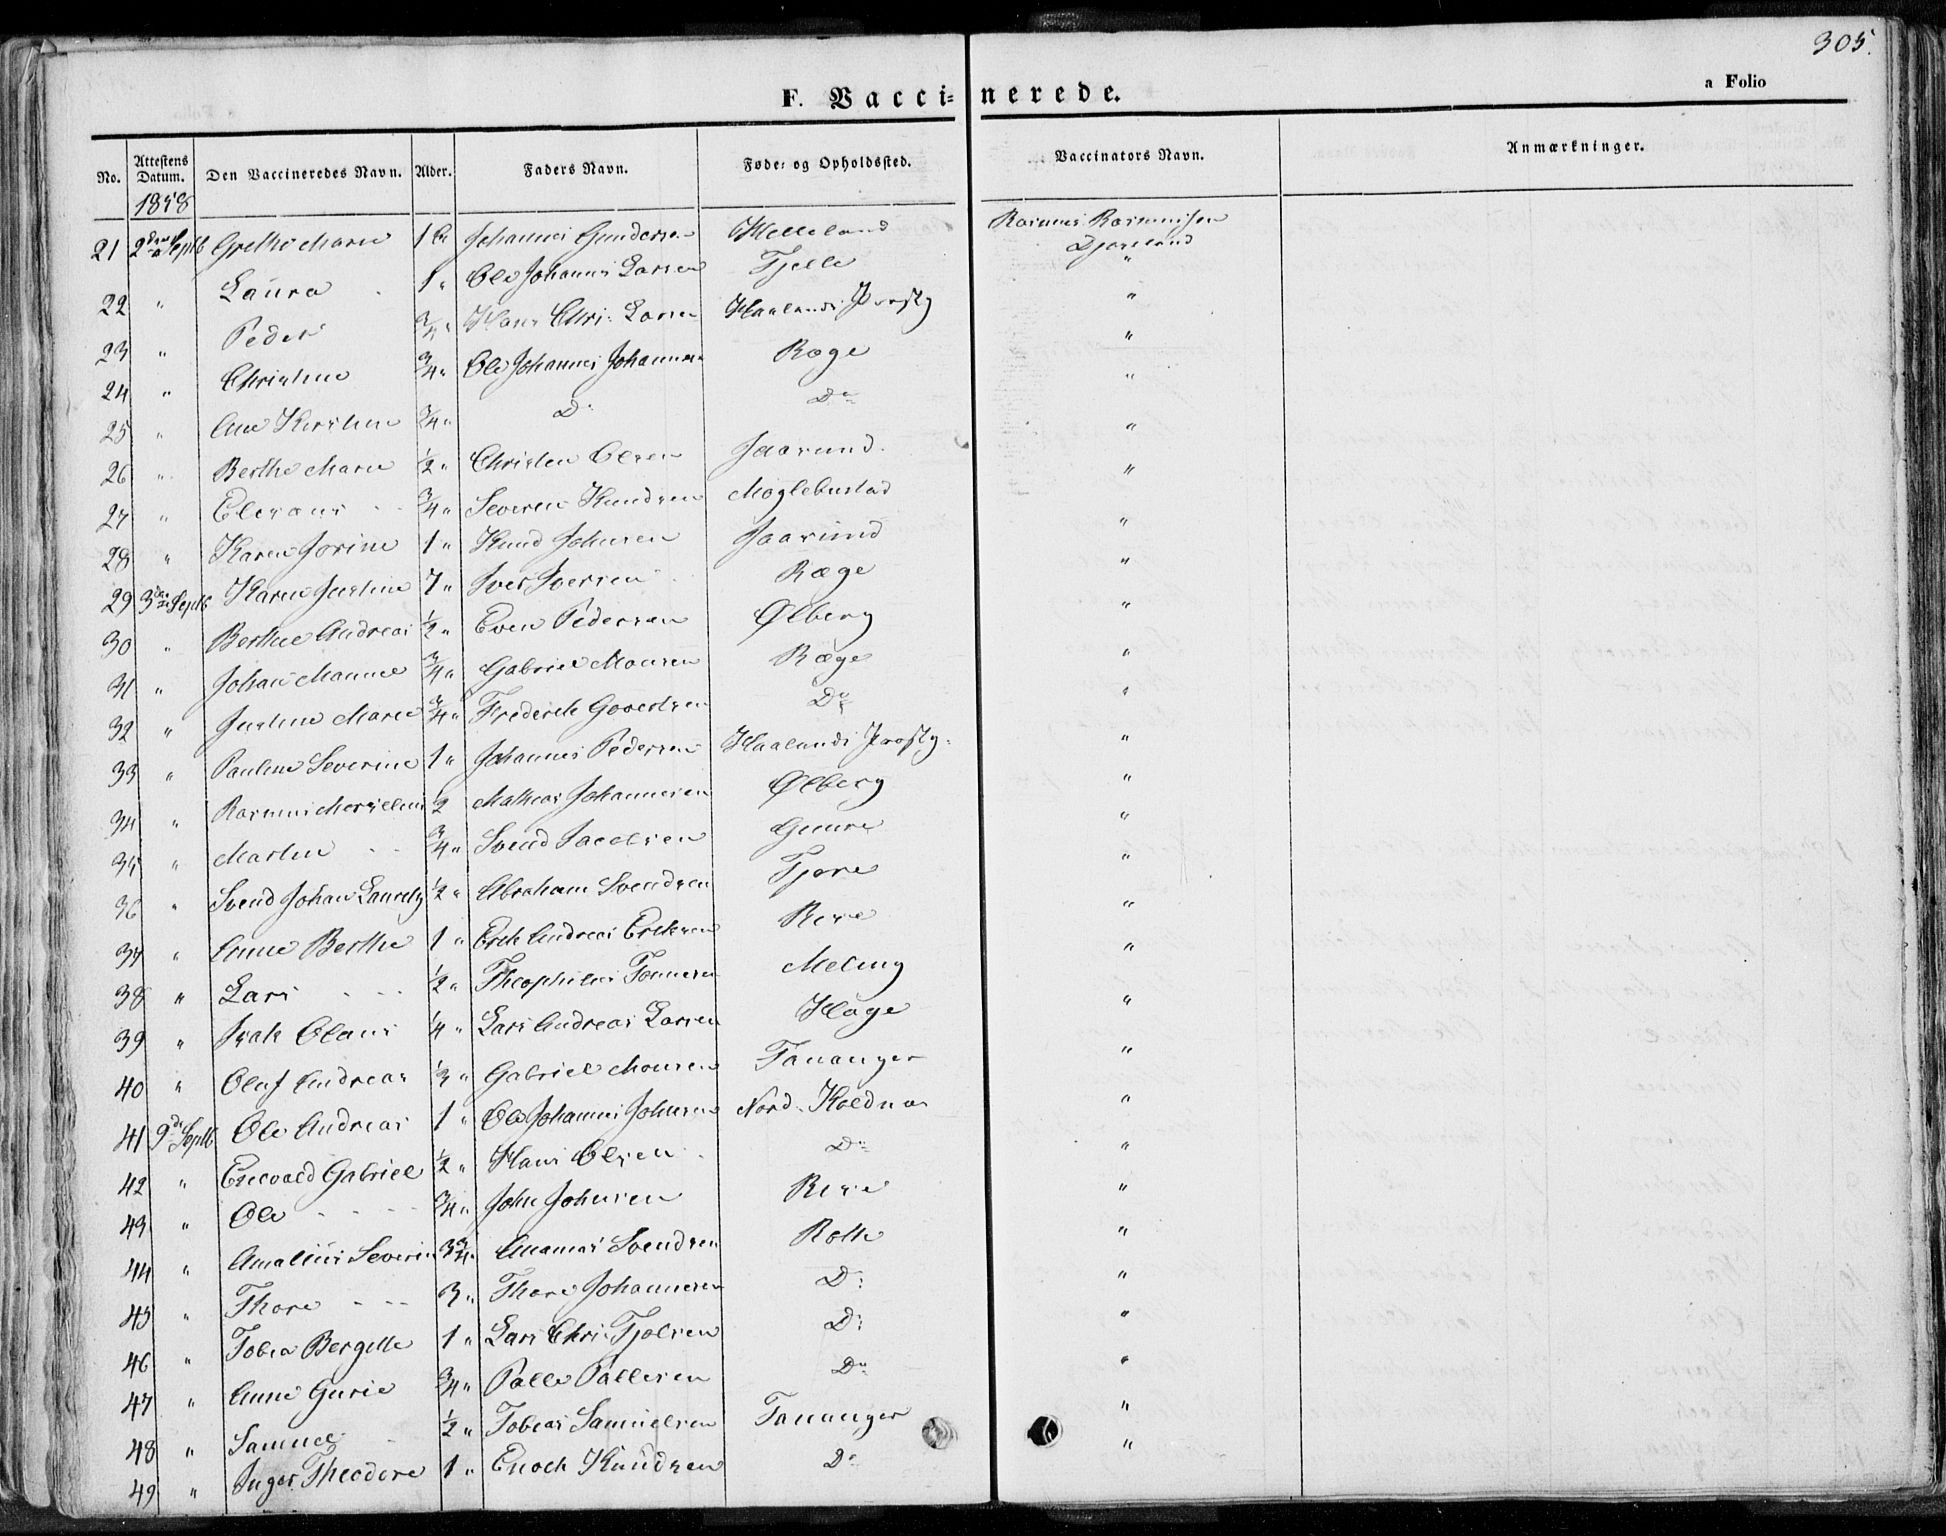 305.
F. Vaccinerede.
a Folio
No. Attestens Datum. Den Vaccineredes Navn. Alder. Faders Navn. Føde- og Opholdssted. Vaccinators Navn. Anmærkninger.
1858
21 2den Septb Grethe Marie 1 Johannes Gundersen Helleland Rasmus Rasmussen
22 " Laura 1 " Ole Johannes Larsen Tjelle "
23 " Peder 3/4 " Hans Chr: Larsen Haalands Præstg "
24 " Christine 3/4 " Ole Johannes Johannesen Ræge "
25 " Ane Kirstine 3/4 " Do Do "
26 " Berthe Marie 1/2 " Christen Olsen Jaasund "
27 " Eleanus 3/4 " Severin Knudsen Møglebustad "
28 " Karen Jorine 1 " Knud Johnsen Jaasund "
29 3die Septb Karen Justine 7 " Iver Iversen Ræge "
30 " Berthe Andrea 1/2 " Even Pedersen Ølberg "
31 " Johan Manne 3/4 " Gabriel Monsen Ræge "
32 " Justine Marie 3/4 " Frederik Govertsen Do "
33 " Pauline Severine 1 " Johannes Pedersen Haalands Præstg: "
34 " Rasmus 2 Mathias Johannesen Ølberg "
35 " Martin 3/4 " Svend Jacobsen "
36 " Svend Johan Lauritz 1/2 " Abraham Svendsen Tjore "
37 " Anne Berthe 1 " Erik Andreas Eriksen "
38 " Lars 1/2 " Theophilus Tonnesen Meling "
39 " Isak Olaus 1/4 " Lars Andreas Larsen Hage "
40 " Oluf Andreas 1/3 " Gabriel Monsen Tananger "
41 9de Septb Ole Andreas 1 " Ole Johannes Johnsen Nord. "
42 " Enevald Gabriel 1/2 " Hans Olsen Do "
43 " Ole 3/4 " John Johnsen "
44 " Amalius Severin 3 3/4 " Svendsen Rott "
45 " Thore 3 " Thore Johannesen D: "
46 " Tobea Bergitte 1 " Lars Chr: D: "
47 " Anne Gurie 3/4 " Palle Pallesen Do "
48 " Samuel 1/2 " Tobias Samuelsen Tananger "
49 " Inger Theodore 1 " Enoch Knudsen Do "